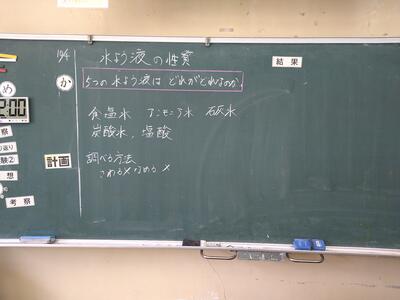 10/4 水よう液の性質
結果
め
か
5つの水よう液は どれがどれなのか。
:00
食塩水 アンモニア水 石灰水
炭酸水、塩酸
計画
調べる方法
さわる× なめる×
想
考察